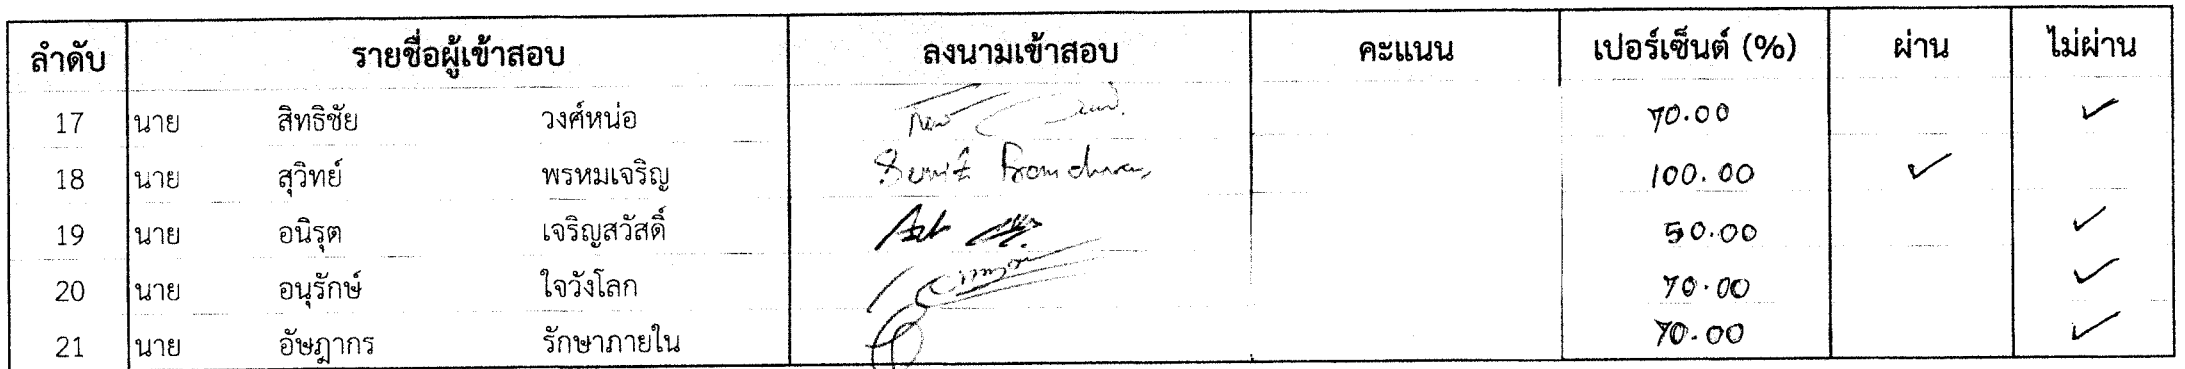 ลำดับ รายชื่อผู้เข้าสอบ ลงนามเข้าสอบ คะแนน เปอร์เซ็นต์ (%) ผ่าน ไม่ผ่าน
17 นาย สิทธิชัย วงศ์หน่อ 70.00 ✓
18 นาย สุวิทย์ พรหมเจริญ 100.00 ✓
19 นาย อนิรุต เจริญสวัสดิ์ 50.00 ✓
20 นาย อนุรักษ์ ใจวังโลก 70.00 ✓
21 นาย อัษฎากร รักษาภายใน 70.00 ✓